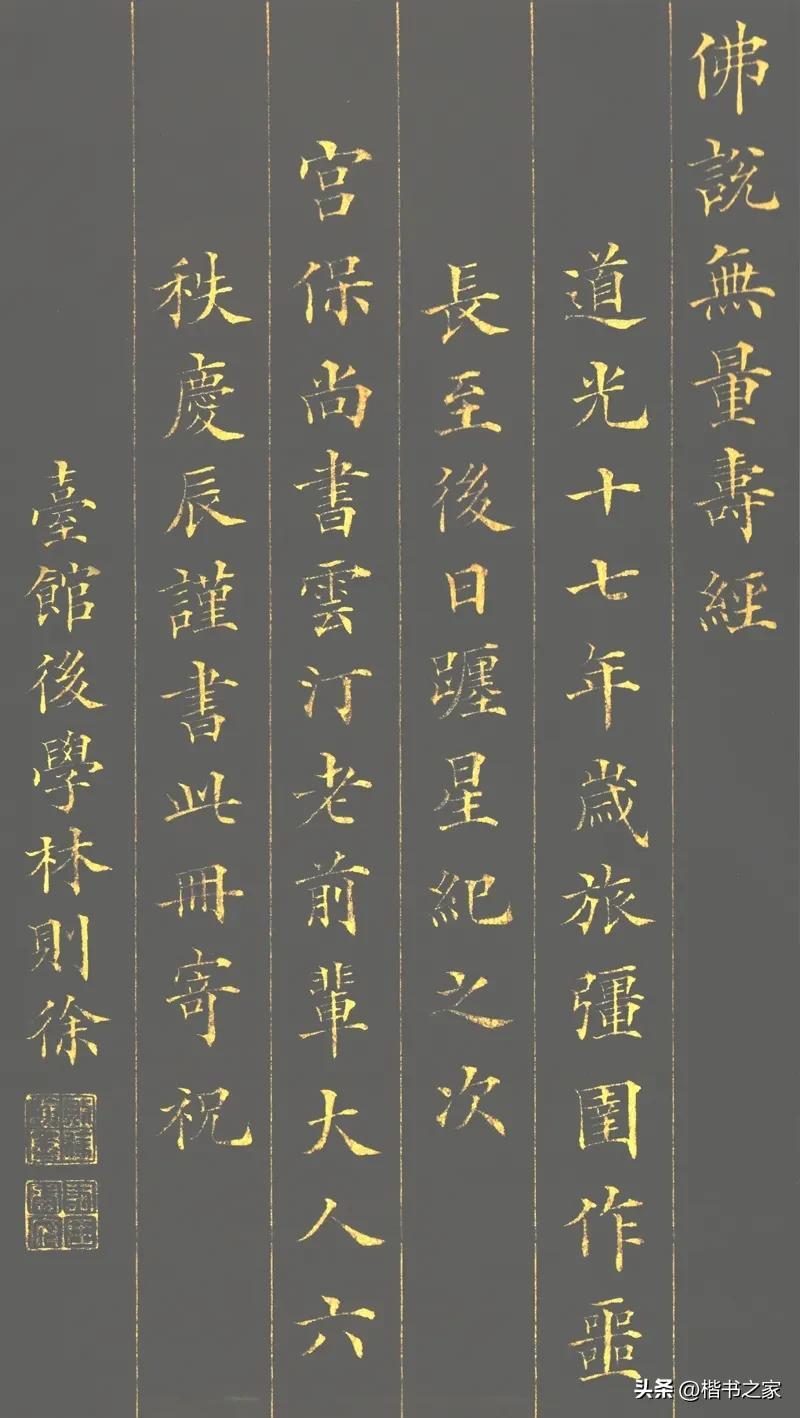 佛説無量壽經
道光十七年歲旅彊圉作噩
長至後日躔星紀之次
宮保尚書雲汀老前輩大人六
秩慶辰謹書此冊寄祝
臺館後學林則徐
头条 @楷书之家